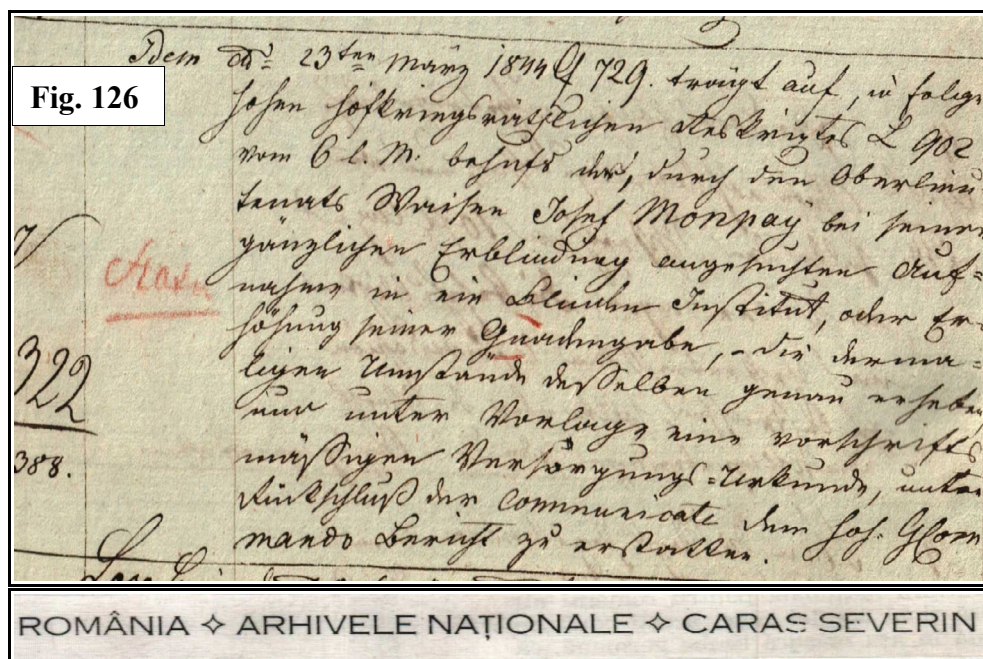 Idem ddº 23ten März 1844 729. trägt auf, in Folge
Fig. 126
hohen hofkriegsräthlichen Reskriptes L 902
vom 6 l. M. behufs der, durch den Oberlieu
tenats Waisen Josef Monpaÿ bei seiner
gänzlichen Erblindung angesuchten Auf=
nahme in ein Blinden Institut, oder Er
höhung seiner Gnadengabe, - die derma=
ligen Umstände desselben genau erheben
und unter Vorlage eine vorschrifts
mässigen Versorgungs=Urkunde, unter
Rückschluß der Communicate dem hoh. GCom
mando Bericht zu erstatten.
7/
322
388.
ROMÂNIA ✧ ARHIVELE NAȚIONALE ✧ CARAS SEVERIN